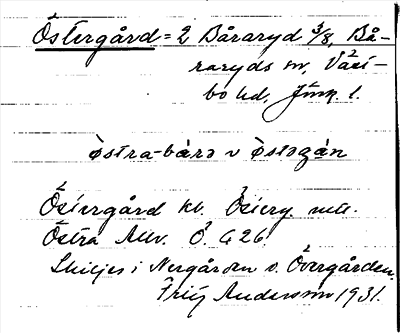 Östergård = 2 Båraryd 3/8, Bå-
raryds sn, Väst-
bo hd, Jönk. l.
östra-bárə v östəgán
Östergård kb. Österg.
Östra Allv. Ö. G 26.
Skiljes i Nergården o. Övergården.
Fritz Andersson 1931.